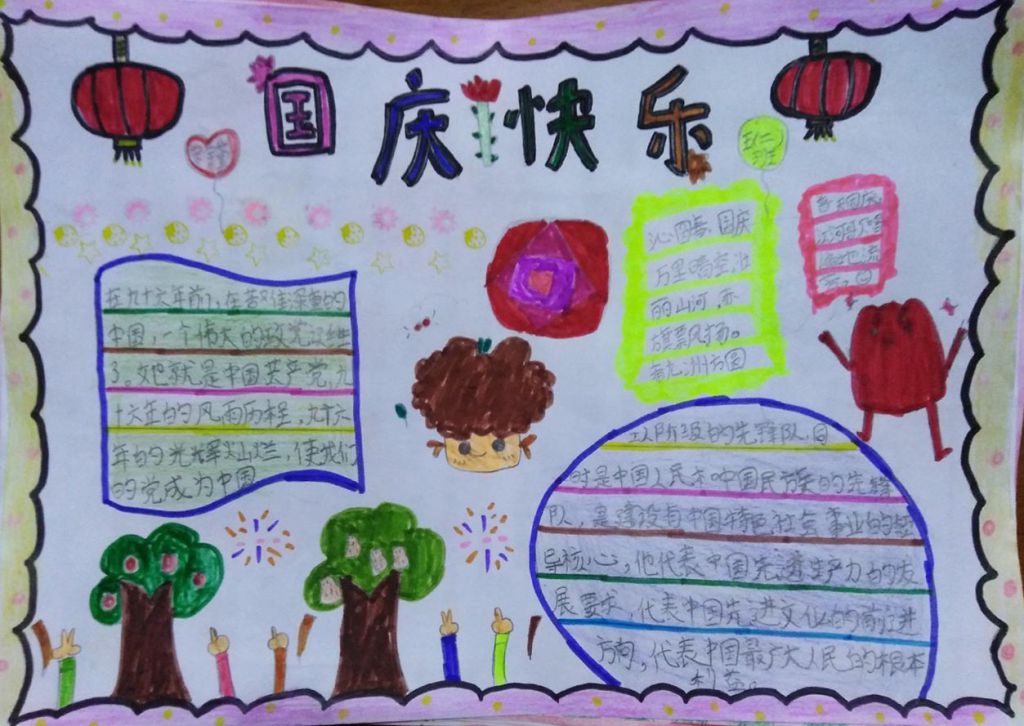 国庆快乐
五二班
沁园春·国庆
万里晴空，江
丽山河，亦
旗飘风扬。
看九洲方圆
在九十六年前，在苦难深重的
中国，一个伟大的政党诞生
了。她就是中国共产党，九
十六年的风雨历程，九十六
年的光辉灿烂，使我们
的党成为中国
工人阶级的先锋队，同
时是中国人民和中国民族的先锋
队，是建设有中国特色社会事业的领
导核心，他代表中国先进生产力的发
展要求，代表中国先进文化的前进
方向，代表中国最广大人民的根本
利益。